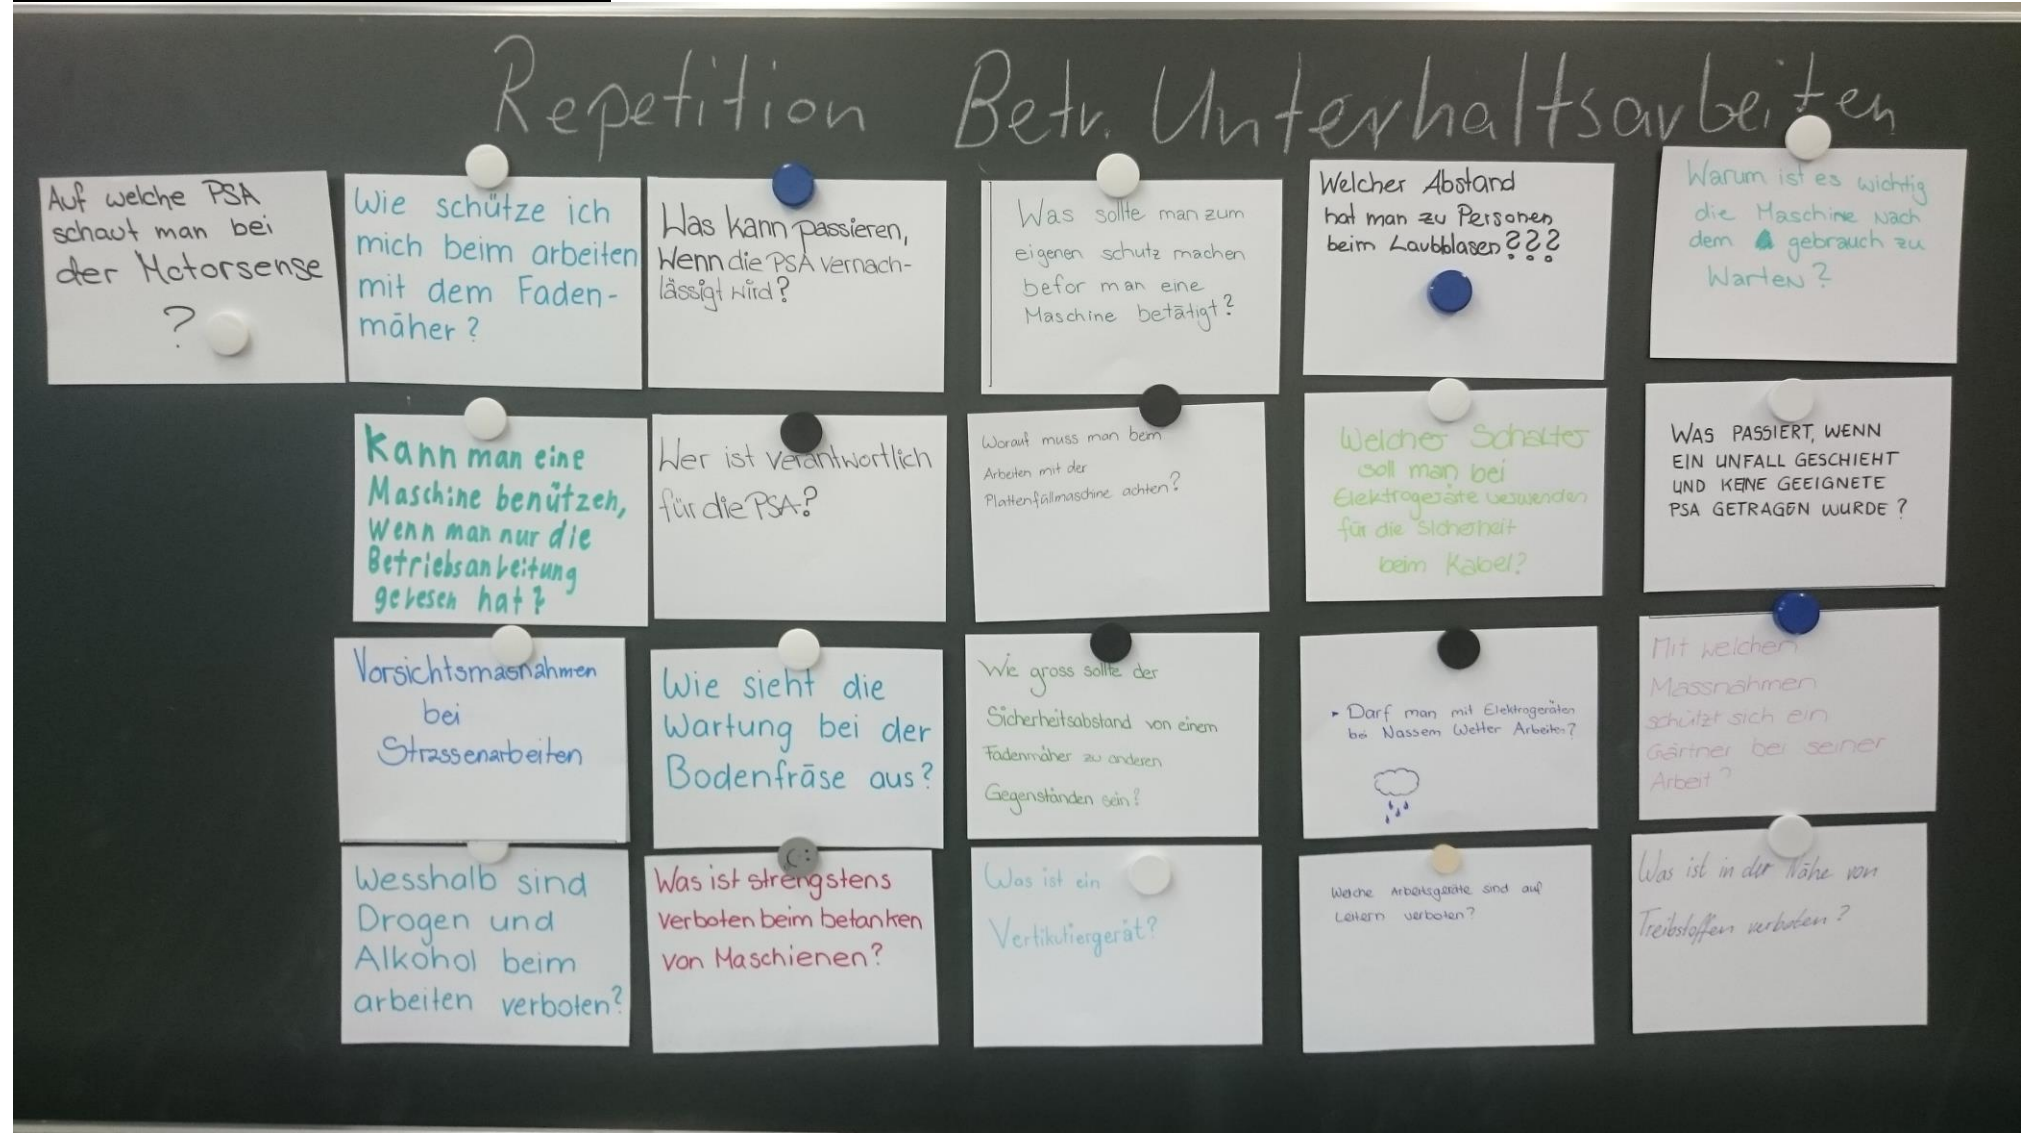 Repetition Betr. Unterhaltsarbeiten
Auf welche PSA
schaut man bei
der Motorsense
?
Wie schütze ich
mich beim arbeiten
mit dem Faden-
mäher?
Was kann passieren,
Wenn die PSA vernach-
lässigt wird?
Was sollte man zum
eigenen schutz machen
befor man eine
Maschine betätigt?
Welcher Abstand
hat man zu Personen
beim Laubblasen???
Warum ist es wichtig
die Maschine nach
dem gebrauch zu
Warten?
Kann man eine
Maschine benützen,
Wenn man nur die
Betriebsanleitung
gelesen hat?
Wer ist verantwortlich
für die PSA?
Worauf muss man beim
Arbeiten mit der
Plattenfällmaschine achten?
Welcher Schalter
soll man bei
Elektrogeräte verwenden
für die Sicherheit
beim Kabel?
WAS PASSIERT, WENN
EIN UNFALL GESCHIEHT
UND KEINE GEEIGNETE
PSA GETRAGEN WURDE?
Vorsichtsmasnahmen
bei
Strassenarbeiten
Wie sieht die
Wartung bei der
Bodenfräse aus?
Wie gross sollte der
Sicherheitsabstand von einem
Fadenmäher zu anderen
Gegenständen sein?
- Darf man mit Elektrogeräten
bei Nassem Wetter Arbeiten?
Mit welchen
Massnahmen
schützt sich ein
Gärtner bei seiner
Arbeit?
Wesshalb sind
Drogen und
Alkohol beim
arbeiten verboten?
Was ist strengstens
verboten beim betanken
von Maschienen?
Was ist ein
Vertikutiergerät?
Welche Arbeitsgeräte sind auf
Leitern verboten?
Was ist in der Nähe von
Treibstoffen verboten?